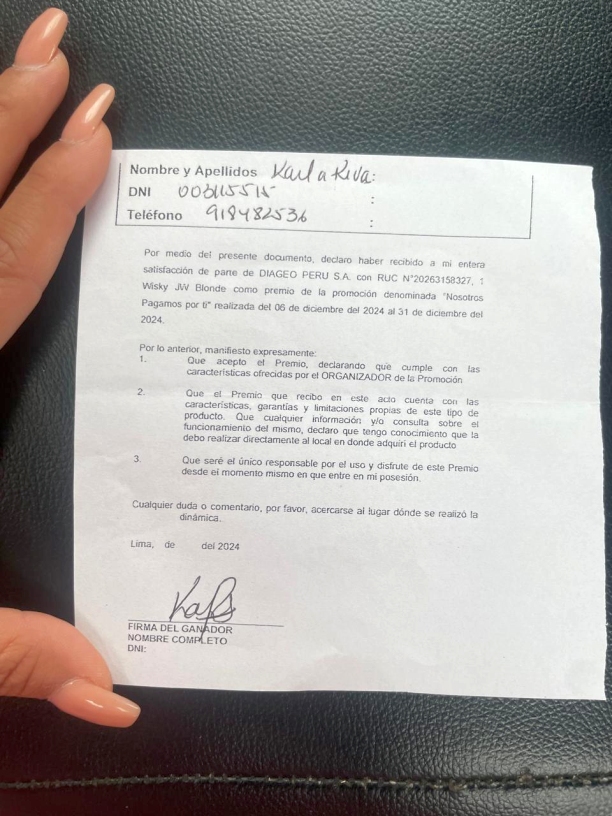 Nombre y Apellidos Karla Riva:
DNI :
Teléfono 918482536 :
Por medio del presente documento, declaro haber recibido a mi entera
satisfacción de parte de DIAGEO PERU S.A. con RUC N°20263158327, 1
Wisky JW Blonde como premio de la promoción denominada "Nosotros
Pagamos por ti" realizada del 06 de diciembre del 2024 al 31 de diciembre del
2024.
Por lo anterior, manifiesto expresamente:
1. Que acepto el Premio, declarando que cumple con las
características ofrecidas por el ORGANIZADOR de la Promoción
2. Que el Premio que recibo en este acto cuenta con las
características, garantías y limitaciones propias de este tipo de
producto. Que cualquier información y/o consulta sobre el
funcionamiento del mismo, declaro que tengo conocimiento que la
debo realizar directamente al local en donde adquirí el producto
3. Que seré el único responsable por el uso y disfrute de este Premio
desde el momento mismo en que entre en mi posesión.
Cualquier duda o comentario, por favor, acercarse al lugar dónde se realizó la
dinámica.
Lima, de del 2024
FIRMA DEL GANADOR
NOMBRE COMPLETO
DNI: